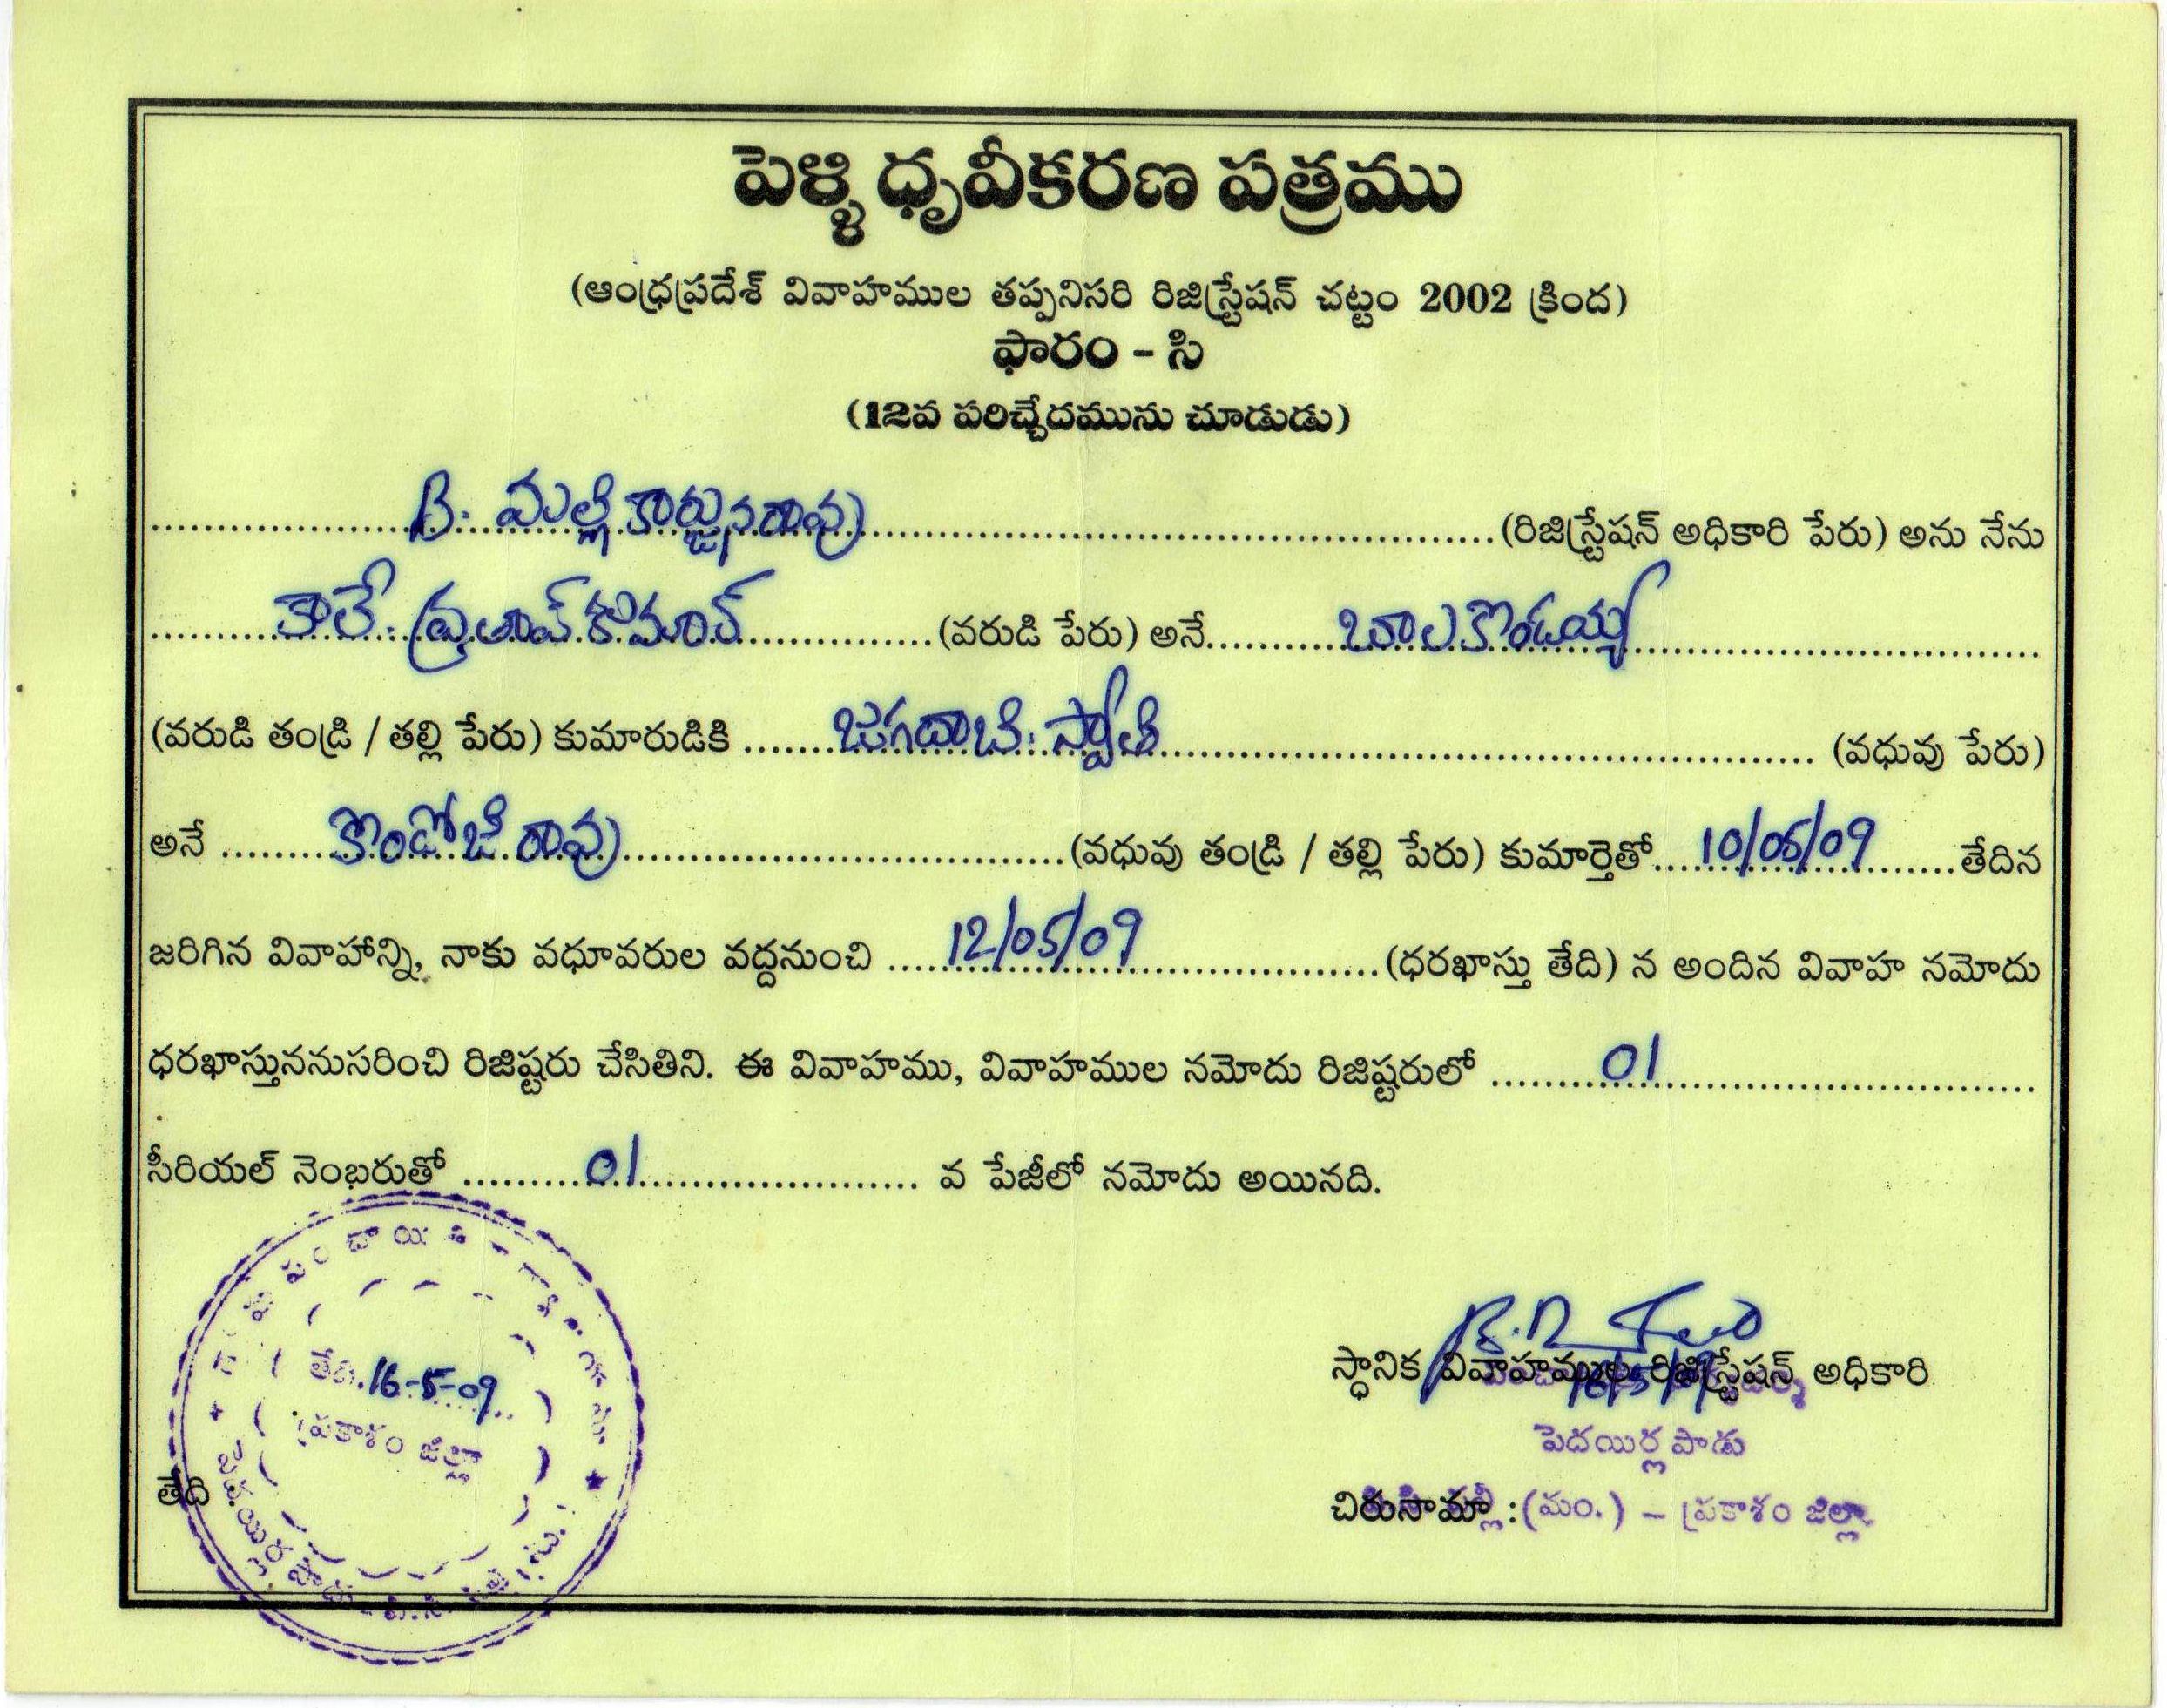 పెళ్ళి ధృవీకరణ పత్రము
(ఆంధ్రప్రదేశ్ వివాహముల తప్పనిసరి రిజిస్ట్రేషన్ చట్టం 2002 క్రింద)
ఫారం - సి
(12వ పరిచ్ఛేదమును చూడుడు)
B. మల్లికార్జునరావు (రిజిస్ట్రేషన్ అధికారి పేరు) అను నేను
కాలే. ప్రతాప్ కుమార్ (వరుడి పేరు) అనే బాలకొండయ్య
(వరుడి తండ్రి / తల్లి పేరు) కుమారుడికి జగదాబి. స్వాతి (వధువు పేరు)
అనే కొండోజిరావు (వధువు తండ్రి / తల్లి పేరు) కుమార్తెతో 10/05/09 తేదిన
జరిగిన వివాహాన్ని, నాకు వధూవరుల వద్దనుంచి 12/05/09 (ధరఖాస్తు తేది) న అందిన వివాహ నమోదు
ధరఖాస్తుననుసరించి రిజిష్టరు చేసితిని. ఈ వివాహము, వివాహముల నమోదు రిజిష్టరులో 01
సీరియల్ నెంబరుతో 01 వ పేజీలో నమోదు అయినది.
తేది. 16-5-09
ప్రకాశం జిల్లా
స్ధానిక వివాహముల రిజిస్ట్రేషన్ అధికారి
పెదయిర్లపాడు
తేది
చిరుసామా :(మం.) - ప్రకాశం జిల్లా